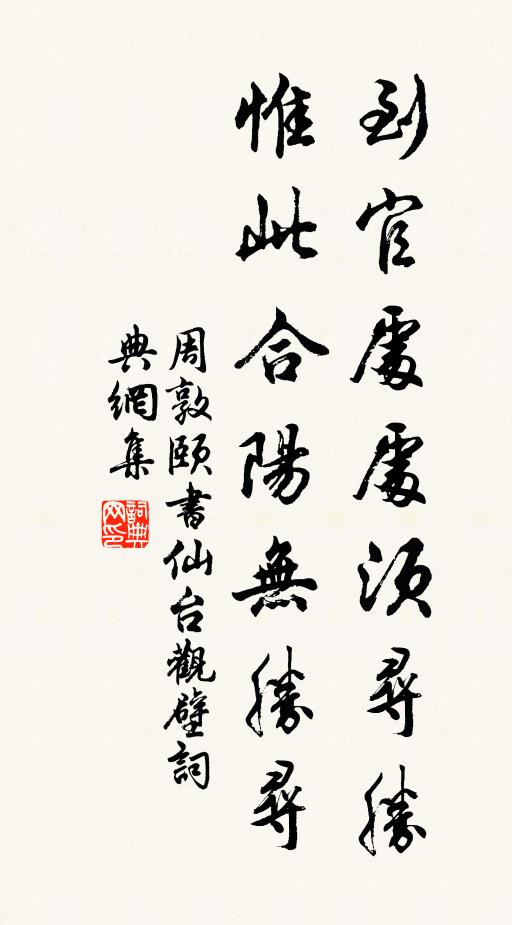 到官處處須尋勝
惟此合陽無勝尋
周敦頤書仙台觀壁詞
典網集
詞典網印